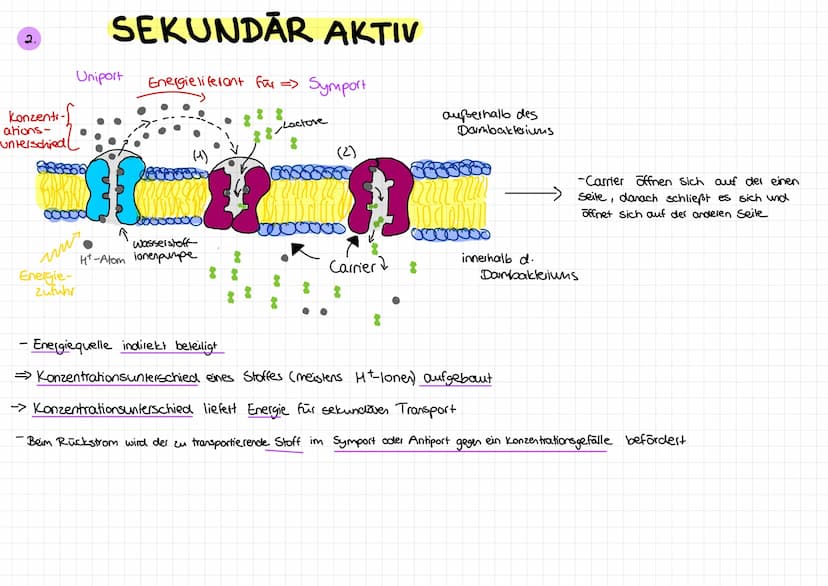 2.
SEKUNDÄR AKTIV
Uniport
Energielieferant für => Symport
Konzentr-
ations-
unterschied
Lactose
(1)
(2)
außerhalb des
Darmbakteriums
- Carrier öffnen sich auf der einen
Seile, danach schließt es sich und
öffnet sich auf der anderen Seite
Energie-
zufuhr
H+-Atom
Wasserstoff-
ionenpumpe
Carrier
innerhalb d.
Darmbakteriums
- Energiequelle indirekt beteiligt
=> Konzentrationsunterschied eines Stoffes (meistens H+-Ionen) aufgebaut
-> Konzentrationsunterschied liefert Energie für sekundären Transport
- Beim Rückstrom wird der zu transportierende Stoff im Symport oder Antiport gegen ein Konzentrationsgefälle befördert